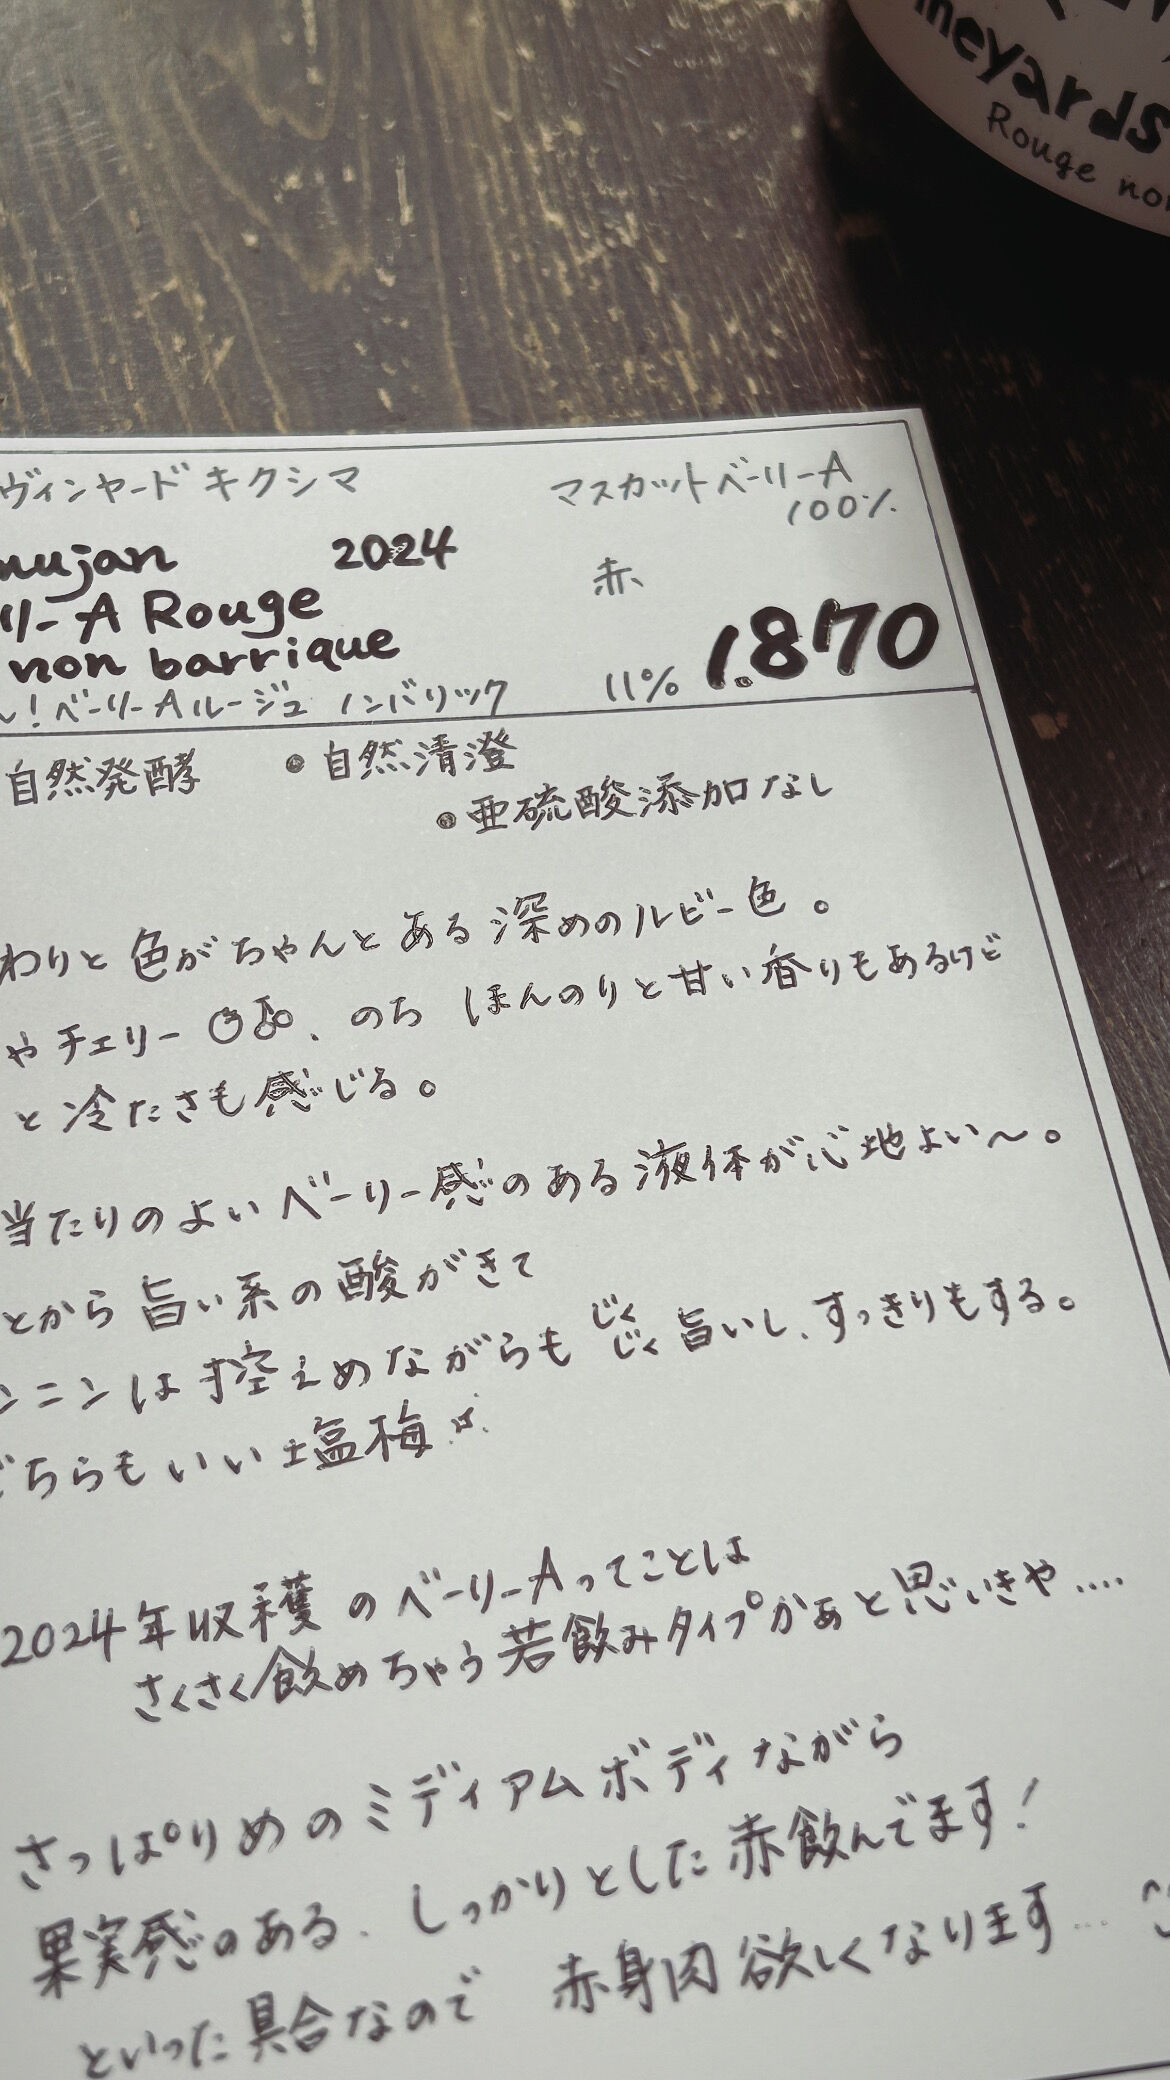 ineyards
Rouge non
ヴィンヤードキクシマ
マスカットベーリーA
100%
mujan 2024
リーA Rouge
non barrique
赤
11% 1.870
ん!ベーリーAルージュ ノンバリック
自然発酵 ●自然清澄
●亜硫酸添加なし
わりと色がちゃんとある深めのルビー色。
やチェリー、のち ほんのりと甘い香りもあるけど
と冷たさも感じる。
当たりのよいベーリー感のある液体が心地よい〜。
とから旨い系の酸がきて
ンニンは控えめながらも じくじく旨いし、すっきりもする。
どちらもいい塩梅
2024年収穫のベーリーAってことは
さくさく飲めちゃう若飲みタイプかぁと思いきや....
さっぱりめのミディアムボディながら
果実感のある、しっかりとした赤飲んでます!
といった具合なので 赤身肉欲しくなります...